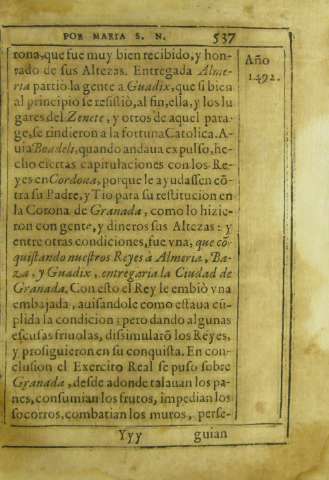 POR MARIA S. N. 537
Año
1492.
rona, que fue muy bien recibido, y hon-
rado de sus Altezas. Entregada Alme-
ria partio la gente a Guadix, que si bien
al principio se resistiò, al fin, ella, y los lu
gares del Zenete, y otros de aquel para-
ge, se rindieron a la fortuna Catolica. A-
uia Boadeli, quando andaua expulso, he-
cho ciertas capitulaciones con los Re-
yes en Cordoua, porque le ayudassen cõ-
tra su Padre, y Tio para su restitucion en
la Corona de Granada, como lo hizie-
ron con gente, y dineros sus Altezas: y
entre otras condiciones, fue vna, que cõ-
quistando nuestros Reyes à Almeria, Ba-
za, y Guadix, entregaria la Ciudad de
Granada. Con esto el Rey le embiò vna
embajada, auisandole como estaua cũ-
plida la condicion: pero dando algunas
escusas friuolas, dissimularõ los Reyes,
y prosiguieron en su conquista. En con-
clusion el Exercito Real se puso sobre
Granada, desde adonde talauan los pa-
nes, consumian los frutos, impedian los
socorros, combatian los muros, perse-
Yyy guian